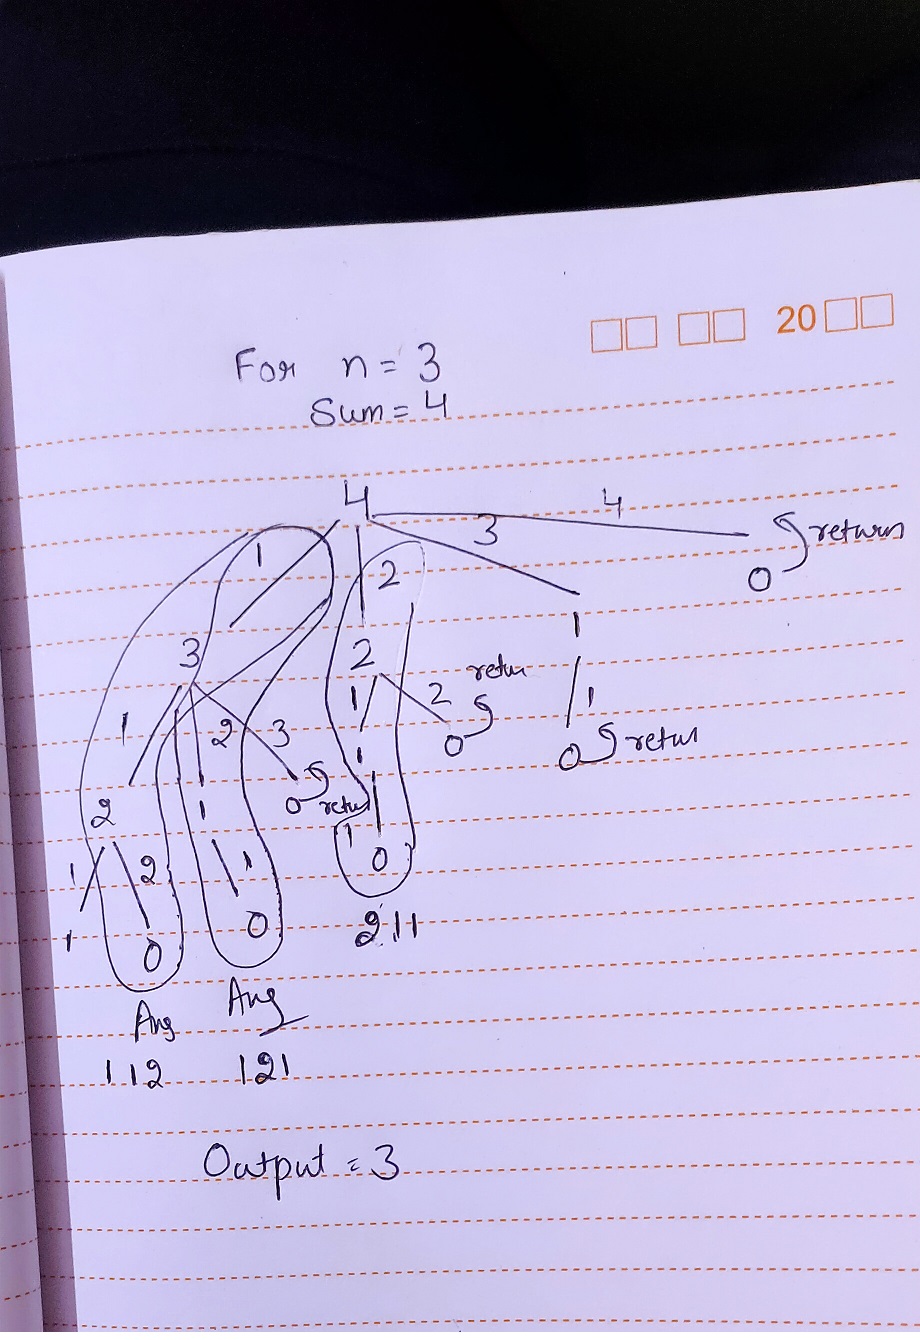 20
For n = 3
Sum = 4
4
1 2 3 4
0 return
3 2 1
1 2 3 1 2 retur 1
0 retur
2 1 0 retur 1 0
1 2 1 1 0
1 0 0 211
Ans Ans
112 121
Output = 3